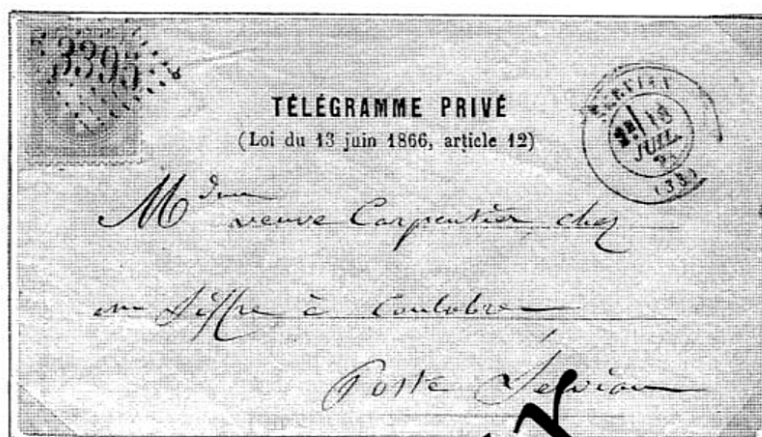 3395
TÉLÉGRAMME PRIVÉ
(Loi du 13 juin 1866, article 12)
SERVIAN
JUIL.
(33)
Mdme veuve Carpentier chez
mr Siffre à Coulobre
Poste Servian